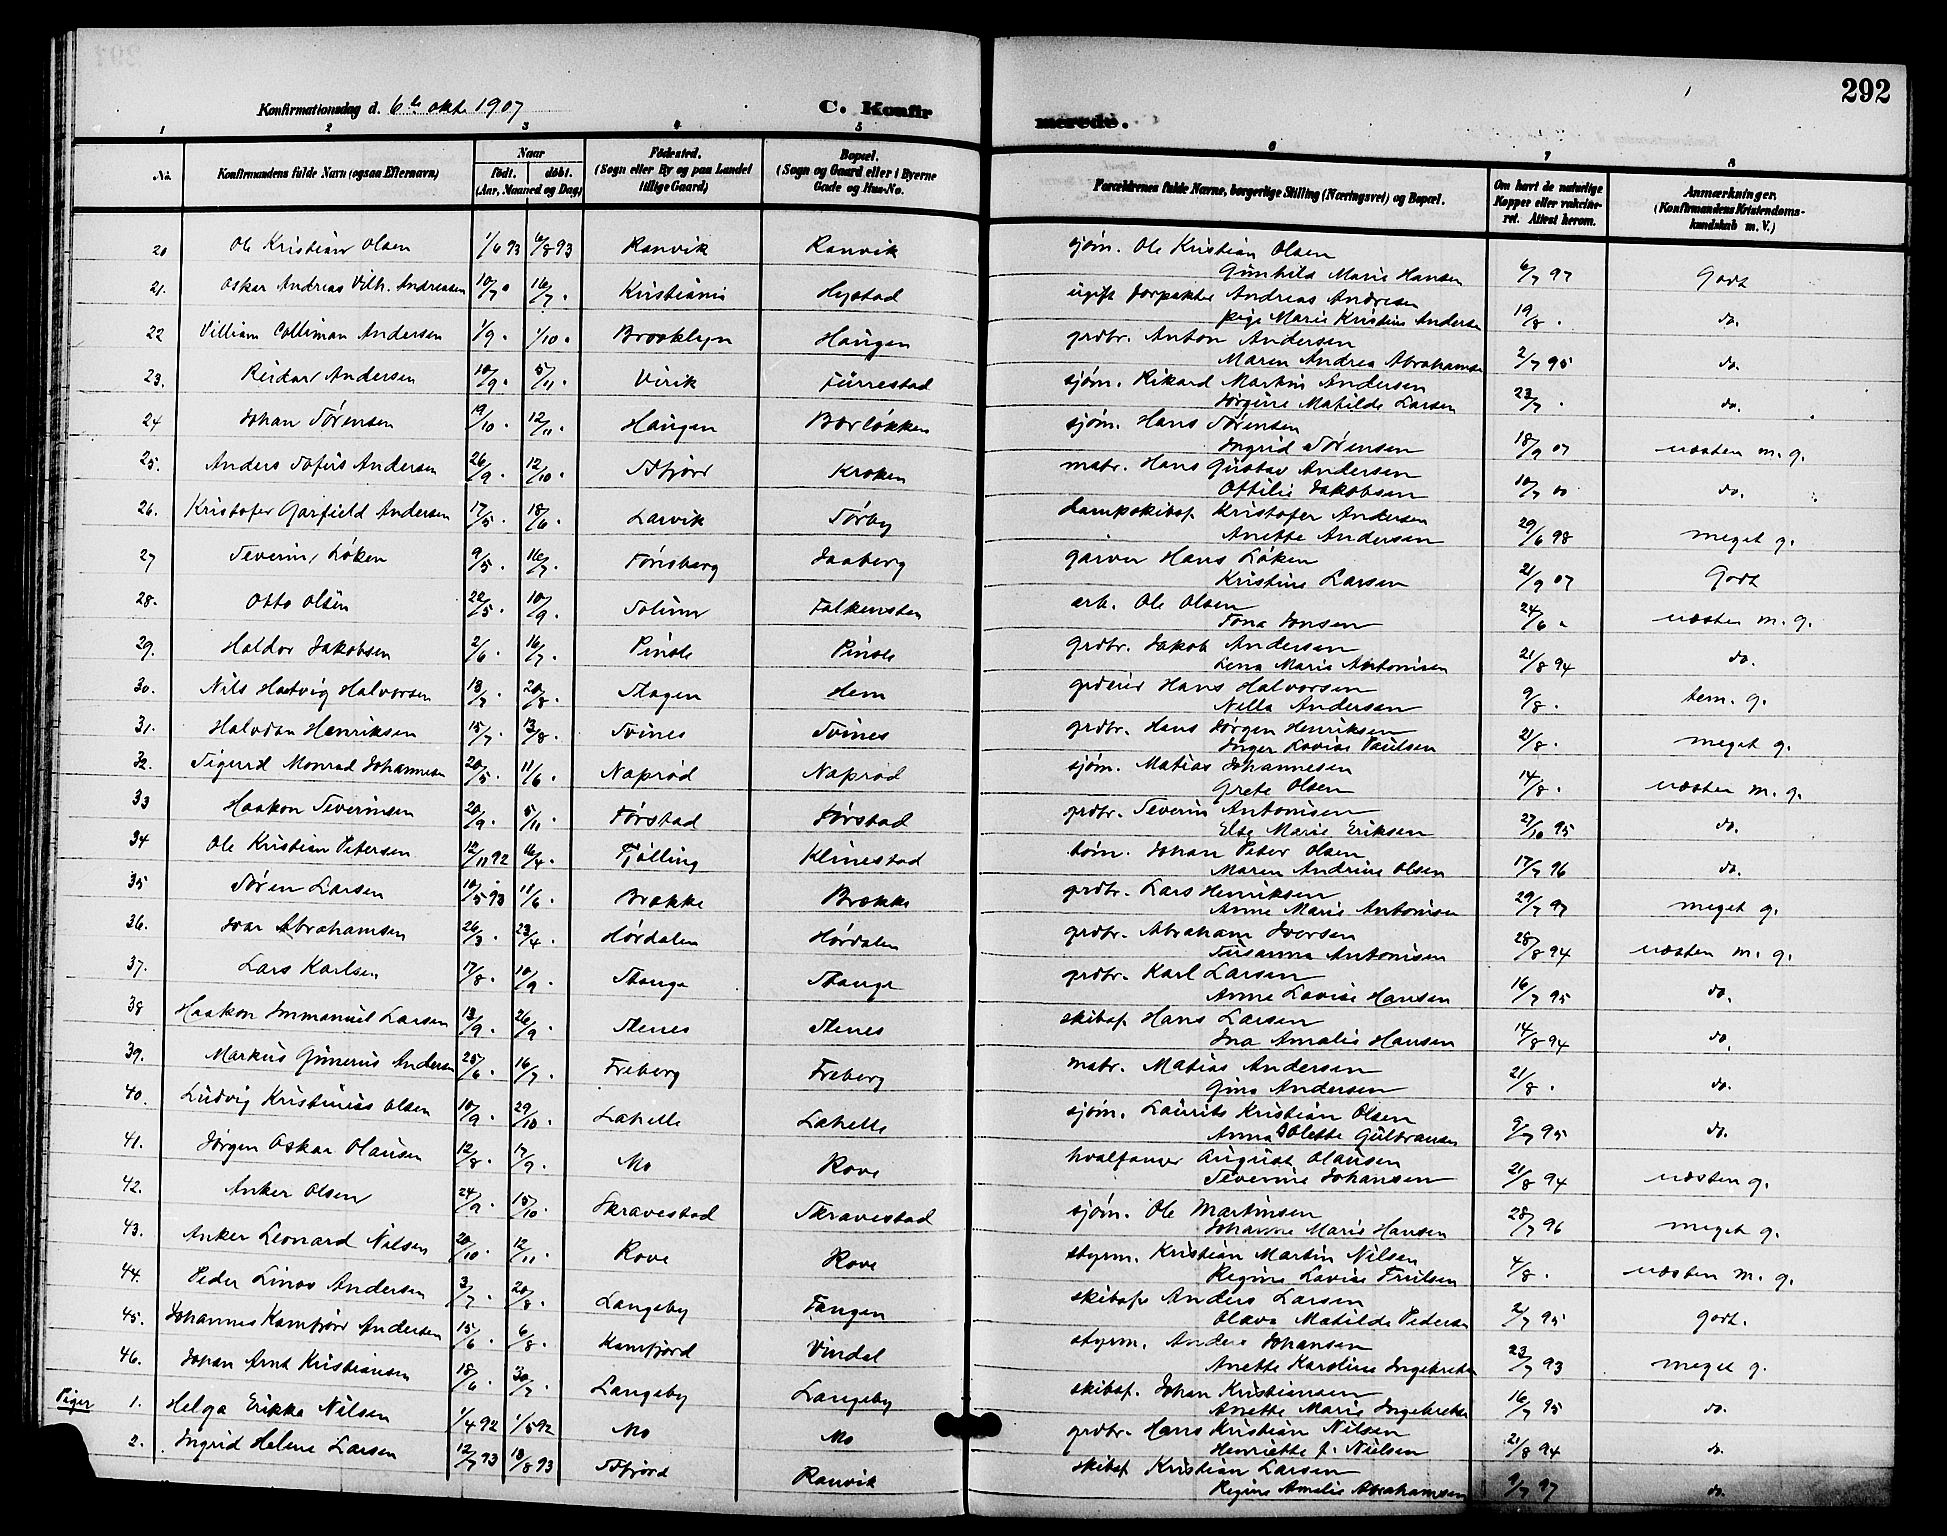 292
Konfirmationsdag d. 6te okt. 1907
C. Konfirmerede.
1 2 3 4 5 6 7 8
No. Konfirmandens fulde Navn (ogsaa Efternavn) Naar født. døbt. (Aar, Maaned og Dag) Fødested. (Sogn eller By og paa Landet tillige Gaard) Bopæl. (Sogn og Gaard eller i Byerne Gade og Hus-No. Forældrenes fulde Navne, borgerlige Stilling (Næringsvei) og Bopæl. Om havt de naturlige Kopper eller vakcineret. Attest herom. Anmærkninger. (Konfirmandens Kristendomskundskab m. V.)
20 Ole Kristian Olsen 1/6 93 6/8 93 Ranvik Ranvik sjøm. Ole Kristian Olsen
Gunhild Marie Hansen 6/7 97 Godt
21. Oskar Andreas Vilh. Andreasen 10/7 " 16/7 . Kristiania Hystad ugift forpakter Andreas Andresen
pige Marie Kristine Andersen 19/8 . do.
22 Villiam Colliman Andersen 1/9 . 1/10 . Brooklyn Haugen grdbr. Anton Andersen
Maren Andrea Abrahamsen 2/7 95 do.
23. Reidar Andersen 10/9 . 5/11 . Virik Furrestad sjøm. Rikard Martin Andersen
Jørgine Matilde Larsen 23/7 . do.
24 Johan Sørensen 19/10 . 12/11 . Haugen Bærløkken sjøm. Hans Sørensen
Ingrid Sørensen 18/9 07 næsten m. g.
25. Anders Sofus Andersen 26/9 . 12/10 . Sfjord Kroken matr. Hans Gustav Andersen
Ottilie Jakobsen 10/7 00 do.
26. Kristofer Garfield Andersen 17/5 . 18/6 . Larvik Sørby dampskibsf. Kristofer Andersen
Anette Andersen 29/6 98 meget g.
27 Severin Løken 9/5 . 16/7 . Tønsberg Jaaberg garver Hans Løken
Kristine Larsen 21/9 07 Godt
28. Otto Olsen 22/5 . 10/9 . Solum Falkensten arb. Ole Olsen
Tona Jonsen 24/6 . næsten m. g.
29. Haldor Jakobsen 2/6 . 16/7 . Pinsle Pinsle grdbr. Jakob Andersen
Lena Marie Antonisen 21/8 94 do.
30. Nils Hartvig Halvorsen 13/7 . 20/8 . Slagen Hem grdeier Hans Halvorsen
Nilla Andersen 9/8 . tem. g.
31. Halvdan Henriksen 15/7 . 13/8 . Svines Svines grdbr. Hans Jørgen Henriksen
Inger Lovise Paulsen 21/8 . meget g.
32. Sigurd Monrad Johannesen 20/5 . 11/6 . Naprød Naprød sjøm. Matias Johannesen
Grete Olsen 14/8 . næsten m. g.
33 Haakon Severinsen 20/9 . 5/11 . Førstad Førstad grdbr. Severin Antonisen
Else Marie Eriksen 27/10 95 do.
34 Ole Kristian Petersen 12/11 92 16/4 . Tjølling Klinestad tøm. Johan Peter Olsen
Maren Andrine Olsen 17/7 96 do.
35 Søren Larsen 10/5 93 11/6 . Brekke Brekke grdbr. Lars Henriksen
Anne Marie Antonisen 29/7 97 meget g.
36. Ivar Abrahamsen 26/3 . 23/4 . Hørdalen Hørdalen grdbr. Abraham Iversen
Susanna Antonisen 28/8 94 næsten m. g.
37. Lars Karlsen 17/8 . 10/9 . Stange Stange grdbr. Karl Larsen
Anne Lovise Hansen 16/7 95 do.
38 Haakon Immanuel Larsen 13/9 . 26/9 . Stenes Stenes skibsf. Hans Larsen
Ina Amalie Hansen 14/8 94 do.
39. Markus Gunerius Andersen 25/6 . 16/7 . Freberg Freberg matr. Matias Andersen
Gina Andersen 21/8 . do.
40. Ludvig Kristinius Olsen 10/9 . 29/10 . Lahelle Lahelle sjøm. Laurits Kristian Olsen
Anna Olette Gulbransen 9/7 95 do.
41. Jørgen Oskar Olausen 12/8 . 17/9 . Mo Rove hvalfanger August Olausen
Severine Johansen 21/8 94 næsten g.
42. Anker Olsen 24/9 . 15/10 . Skravestad Skravestad sjøm. Ole Martinsen
Johanne Marie Hansen 28/7 96 meget g.
43. Anker Leonard Nilsen 20/10 . 12/11 . Rove Rove styrm. Kristian Martin Nilsen
Regine Lovise Trulsen 4/8 . næsten m. g.
44. Peder Linos Andersen 3/7 . 20/8 . Langeby Tangen skibsf. Anders Larsen
Olava Matilde Pedersen 2/7 95 godt.
45. Johannes Kamfjord Andersen 15/6 . 6/8 . Kamfjord Vindal styrm. Anders Johansen
Anette Karoline Ingebretsen 23/7 93 meget g.
46. Johan Arnt Kristiansen 18/6 . 30/7 . Langeby Langeby skibsf. Johan Kristiansen
Anette Marie Ingebretsen 16/7 95 do.
Piger 1. Helga Erikka Nilsen 1/4 92 1/5 92 Mo Mo grdbr. Hans Kristian Nilsen
Henriette f. Nielsen 21/8 94 do.
2. Ingrid Helene Larsen 12/7 93 13/8 93 Sfjord Ranvik skibsf. Kristian Larsen
Regine Amalie Abrahamsen 9/7 97 do.